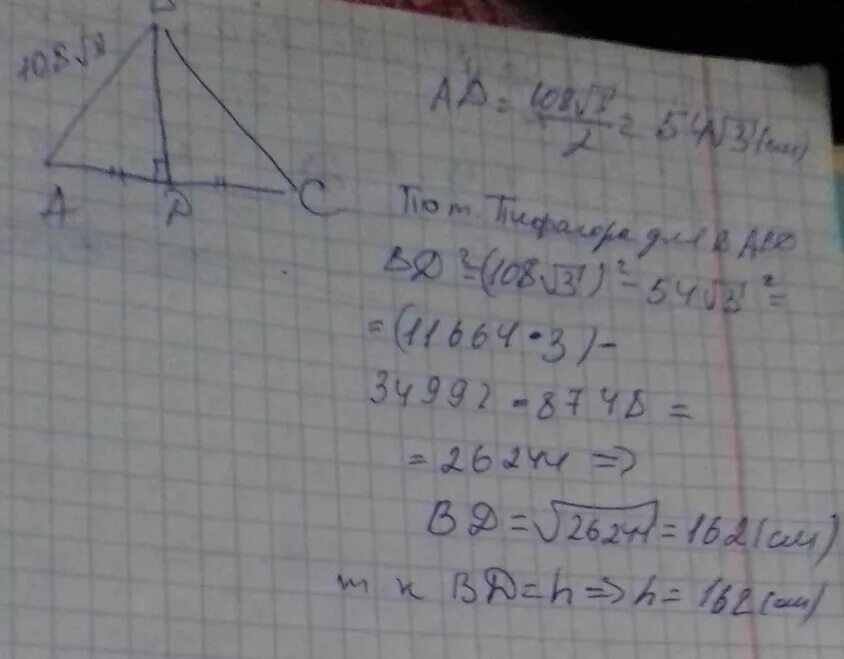 108√3
A
D
C
AD = 108√3 / 2 = 54√3 (см)
По т. Пифагора для
BD² = (108√3)² - 54√3² =
= (11664 · 3) -
34992 - 8748 =
= 26244 =>
BD = √26244 = 162 (см)
т к BD = h => h = 162 (см)